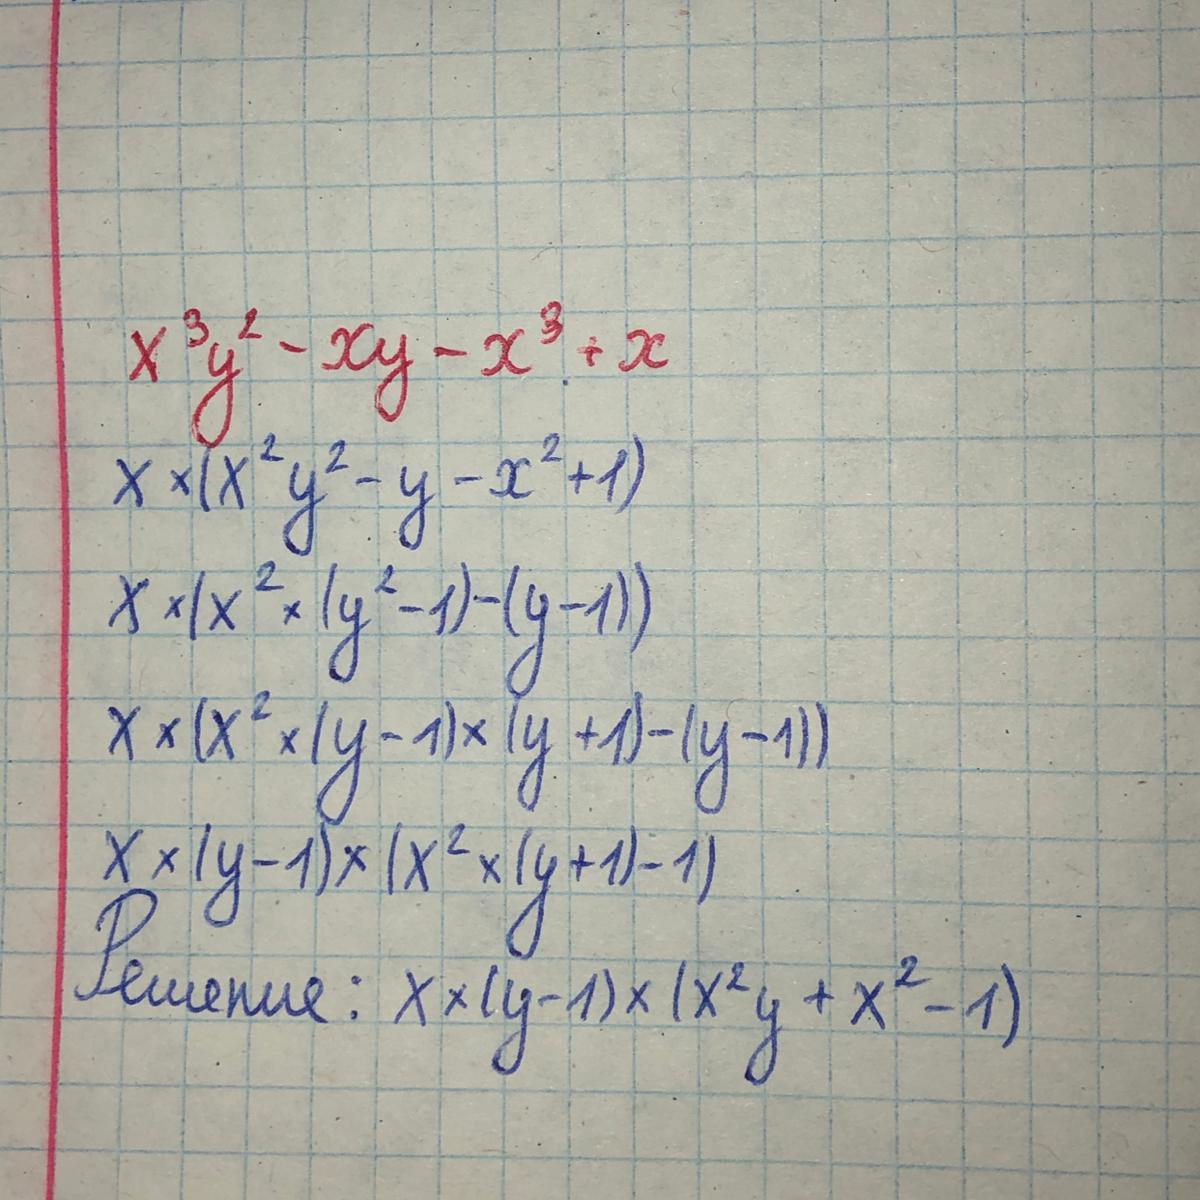 x³y² - xy - x³ + x
x × (x²y² - y - x² + 1)
x × (x² × (y² - 1) - (y - 1))
x × (x² × (y - 1) × (y + 1) - (y - 1))
x × (y - 1) × (x² × (y + 1) - 1)
Решение: x × (y - 1) × (x²y + x² - 1)